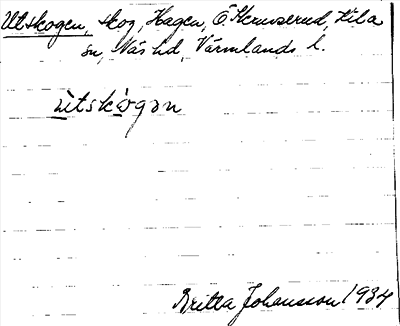 Utskogen, skog, Hagen, Ö Kernserud, Kila
sn, Näs hd, Värmlands l.
ùtskògən
Britta Johansson 1934